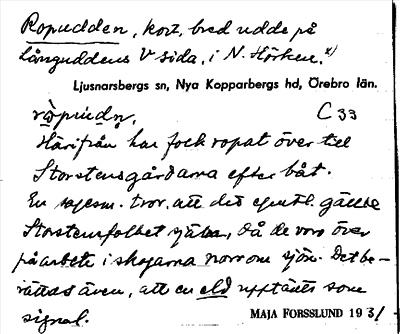 Ropudden, kort, bred udde på
Långuddens V sida, i N. Hörken. x)
Ljusnarsbergs sn, Nya Kopparbergs hd, Örebro län.
C 33
Härifrån har folk ropat över till
Storstensgårdarna efter båt.
En sagesm. tror, att det egentl. gällde
Storstensfolket själva, då de voro över
på arbete i skogarna norr om sjön. Det be-
rättas även, att en eld upptänts som
signal.
MAJA FORSSLUND 1931